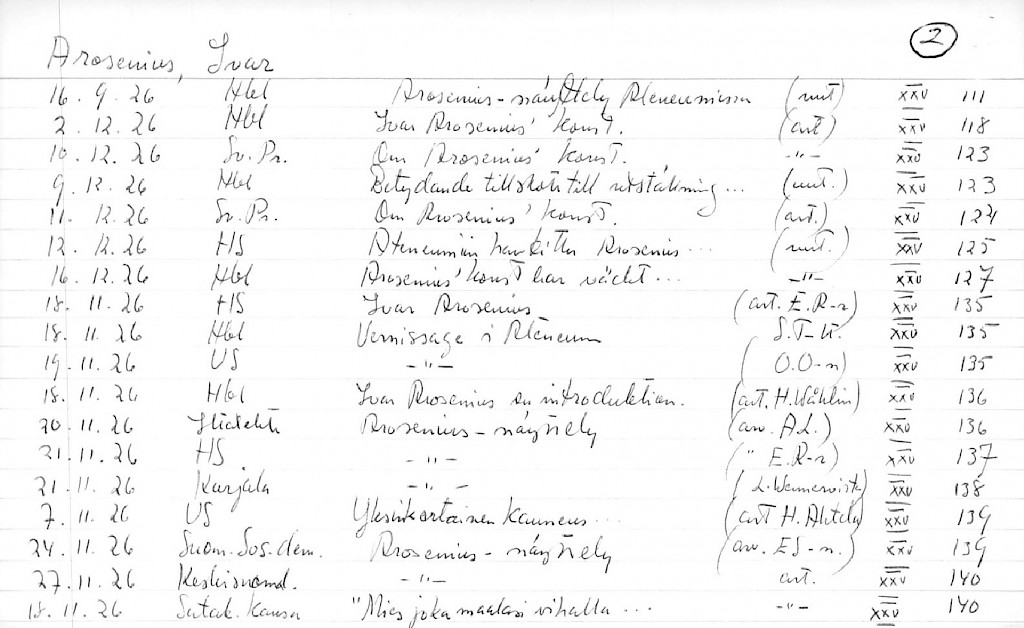 2
Arosenius, Ivar
16. 9. 26 Hbl Arosenius-näyttely Ateneumissa (uut) XXV 111
2. 12. 26 Hbl Ivar Arosenius' konst. (art) XXV 118
10. 12. 26 Sv. Pr. Om Arosenius' konst. -"- XXV 123
9. 12. 26 Hbl Betydande tillskott till utställning... (uut.) XXV 123
11. 12. 26 Sv. Pr. Om Arosenius' konst. (art.) XXV 124
12. 12. 26 HS Ateneumin Arosenius... (uut.) XXV 125
16. 12. 26 Hbl Arosenius' konst har väckt... -"- XXV 127
18. 11. 26 HS Ivar Arosenius (art. E.R-r) XXV 135
18. 11. 26 Hbl Vernissage i Ateneum S.T-tt. XXV 135
19. 11. 26 US -"- (O.O-n) XXV 135
18. 11. 26 Hbl Ivar Arosenius en introduktion. (art. H. Wahlin) XXV 136
20. 11. 26 Iltalehti Arosenius-näyttely (arv. A.L.) XXV 136
21. 11. 26 HS -"- (" E.R-r) XXV 137
21. 11. 26 Karjala -"- (L. Wennervirta) XXV 138
7. 11. 26 US Yksinkertainen kauneus... (art H. Ahtela) XXV 139
24. 11. 26 Suom. Sos. dem. Arosenius-näyttely (arv. E S-n.) XXV 139
27. 11. 26 Keskisuomal. -"- art. XXV 140
18. 11. 26 Satak. Kansa "Mies joka maalasi vihalla... -"- XXV 140